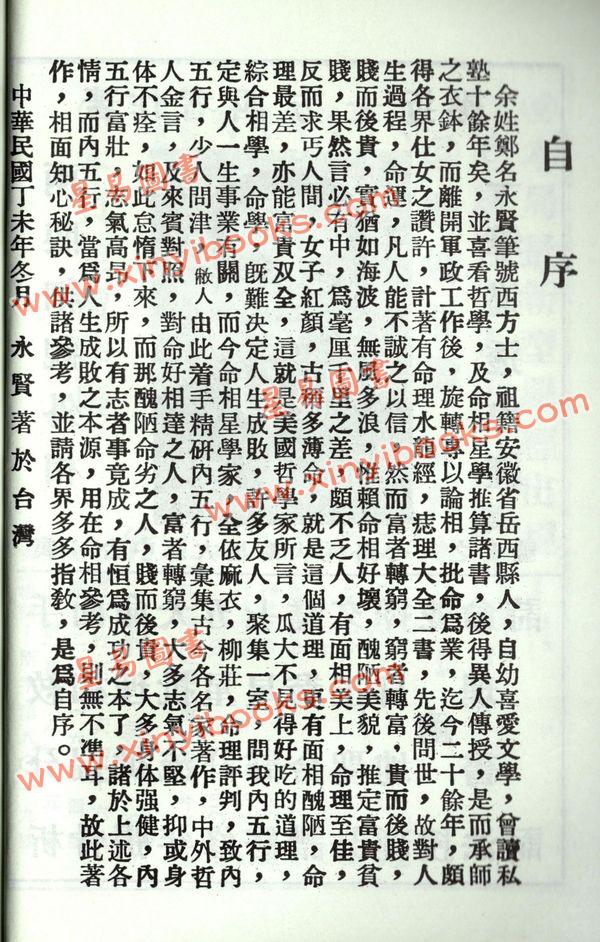 自序
余姓鄭名永賢筆號西方士，祖籍安徽省岳西縣人，自幼喜愛文學，曾讀私
塾十餘年矣，並喜看哲學，及命相星學推算諸書，後得異人傳授，是而承師
之衣鉢，而離開軍政工作後，旋轉專以論相，批命爲業，迄今二十餘年，頗
得各界仕女之讚許，計著有命理水鏡經，痣理大全二書，先後問世，故對人
生過程，命運，凡人能不誠之以信，然而富者轉窮，窮者轉富，貴而後賤，
賤而後貴，富猶如海波，無風多浪，惟賴命相好壞，醜陋美貌，推定富貴貧
賤，果然言必有中，爲毫厘千里之差，頗不乏人，有面相美上，命理至佳，
反而求丐人間，女子紅顏，古稱多薄命，就是這個道理，更有面相醜陋，命
理最差，亦能富貴双全，這就是美國哲學家所言，瓜大不見得好吃的道理，
綜合相學，命學，旣難決定人生成敗，許多友人，聚集一室，問我內五行，
定與人一生事業有關，而今命相星學家，全依麻衣，柳莊，命理評判，致內
五行，少人問津，敝人由此着手精硏內五行，彙集古今各名家著作，中外哲
人金言，及來賓對照，對命好相達之人，富者轉窮，大多志氣不堅，抑或身
体不痊，如此怠惰下來，而那醜陋命劣之人，賤而後貴，大多身体强健，內
五行富壯，志氣高昂，所以有志者事竟成，有恒爲成功之本了，諸於上述各
情，而內五行，當爲人生成敗之本源，用在命相參考，則無不準斗，故此著
作，相面知心秘訣，供諸參考，並請各界多多指敎，是爲自序。
中華民國丁未年冬月　永賢著於台灣
星易圖書
www.xinyibooks.com
星易圖書
www.xinyibooks.com
星易圖書
www.xinyibooks.com